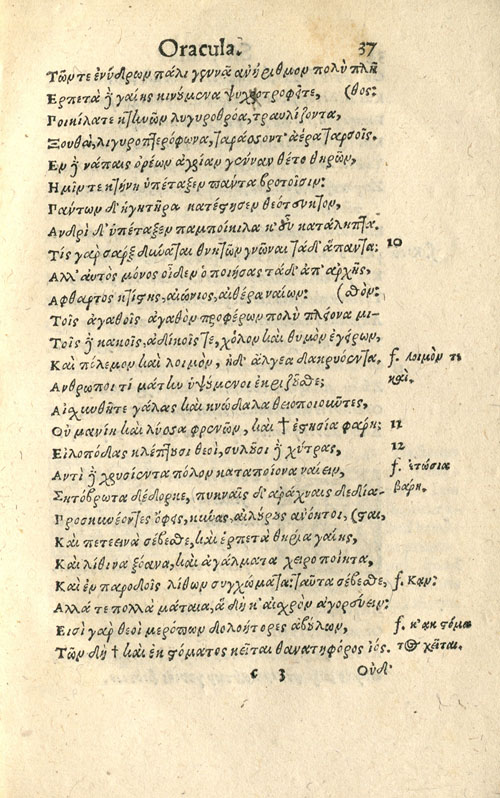 Oracula. 37
Τῶν τε ἐνύδρων πάλι γεννᾷ ἀνήριθμον πολὺ πλῆ
Ἑρπετὰ δὲ γαίης κινούμενα ψυχοτροφεῖτε, (θος:
Ποικίλα τε πτηνῶν λιγυροθρόα, τραυλίζοντα,
Ξουθὰ, λιγυροπτερόφωνα, ταράσσοντ' ἀέρα ταρσοῖς.
Ἐν δὲ νάπαις ὀρέων ἀγρίαν γένναν θέτο θηρῶν,
Ἡμῖν τε κτήνη ὑπέταξεν πάντα βροτοῖσιν:
Πάντων δ' ἡγητῆρα κατέστησεν θεότευκτον,
Ἀνδρὶ δ' ὑπέταξεν παμποίκιλα κ' οὐ κατάληπτα.
Τίς γὰρ σὰρξ δύναται θνητῶν γνῶναι τάδ' ἅπαντα: 10
Ἀλλ' αὐτὸς μόνος οἶδεν ὁ ποιήσας τάδ' ἀπ' ἀρχῆς,
Ἄφθαρτος κτίστης, αἰώνιος, αἰθέρα ναίων: (θόν:
Τοῖς ἀγαθοῖς ἀγαθὸν προφέρων πολὺ πλείονα μι-
Τοῖς δὲ κακοῖς, ἀδίκοις τε, χόλον καὶ θυμὸν ἐγείρων,
Καὶ πόλεμον καὶ λοιμὸν, ἠδ' ἄλγεα δακρυόεντα. f. λοιμόν τε
Ἄνθρωποι τί μάτην ὑψούμενοι ἐκριζοῦσθε; καὶ.
Αἰσχύνθητε γάλας καὶ κνώδαλα θειοποιοῦντες,
Οὐ μανίη καὶ λύσσα φρενῶν, καὶ † ἐτησία φάρη; 11
Εἰ λοπάδας κλέπτουσι θεοί, συλοῦσι δὲ χύτρας, 12
Ἀντὶ δὲ χρυσίεντα πόλον καταποίονα ναίειν, f. ἐτώσια
Σητόβρωτα δέδορκε, πυκναῖς δ' ἀράχναις δεδία- βαρη.
Προσκυνέοντες ὄφεις, κύνας, αἰλούρους ἀνόητοι, (σται,
Καὶ πετεεινὰ σέβεσθε, καὶ ἑρπετὰ θηρία γαίης,
Καὶ λίθινα ξόανα, καὶ ἀγάλματα χειροποίητα,
Καὶ ἐν παρόδοις λίθων συγχώματα: ταῦτα σέβεσθε, f. Κἀν:
Ἄλλα τε πολλὰ μάταια, ἃ δὴ κ' αἰσχρὸν ἀγορεύειν:
Εἰσὶ γὰρ θεοὶ μερόπων δολοήτορες ἀβούλων, f. κ' ἀκ στόμα
Τῶν δὴ † καὶ ἐκ στόματος κεῖται θανατηφόρος ἰός. τος χεῖται.
c 3 Οὐδ'